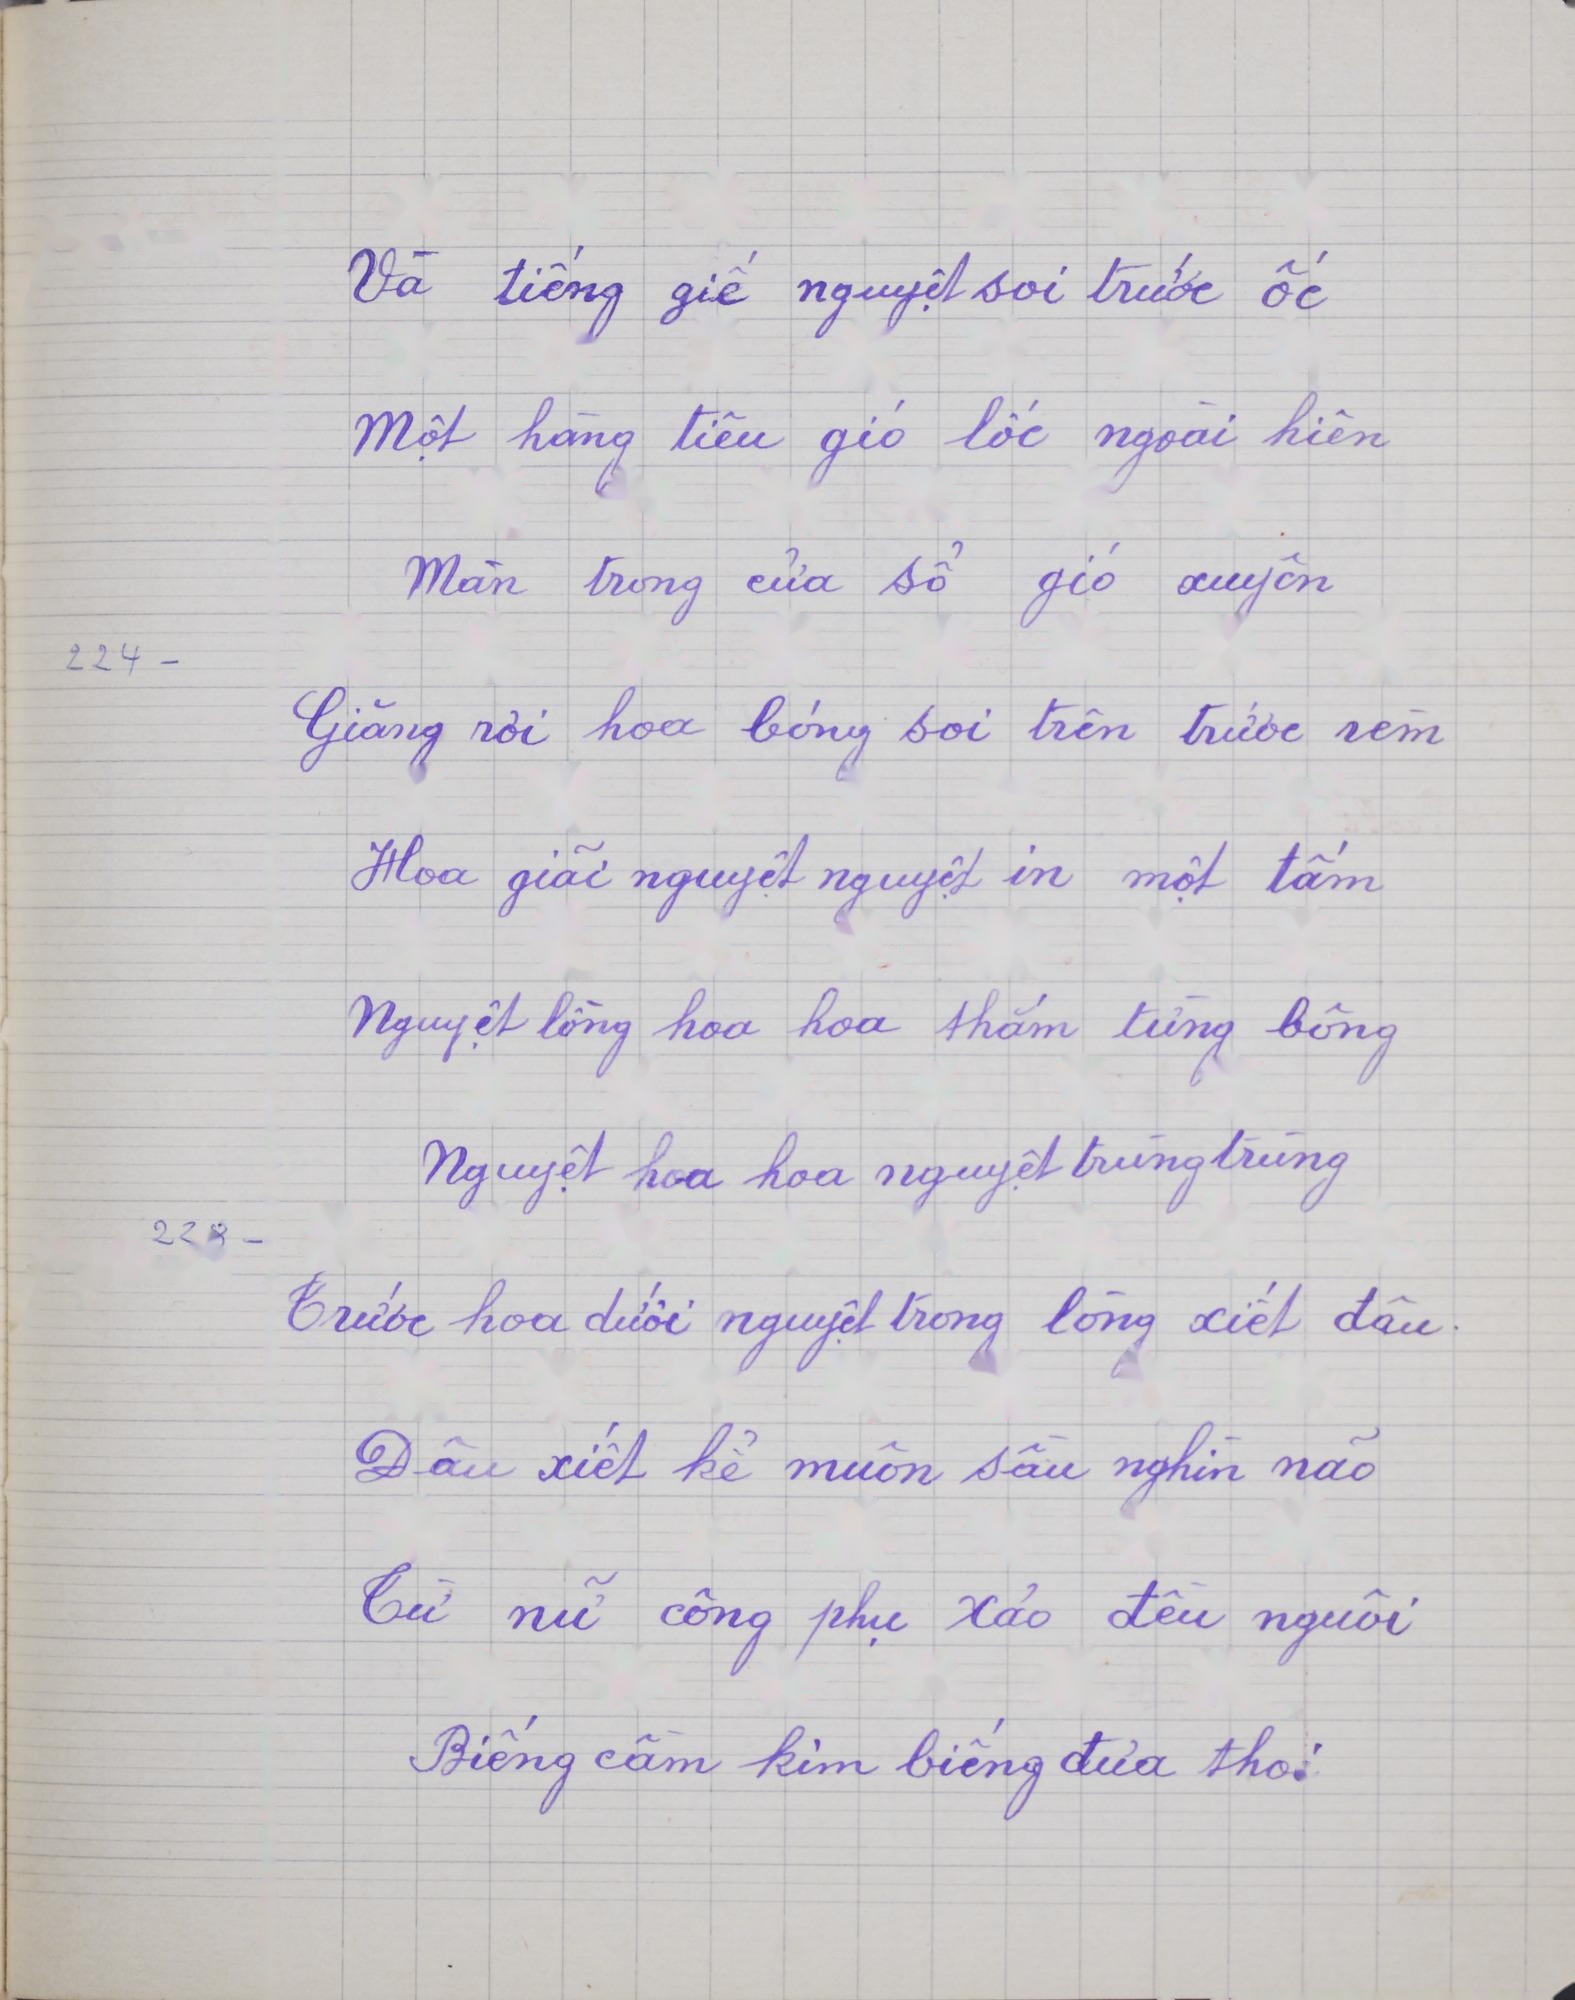 Và tiếng giế nguyệt soi trước ốc
Một hàng tiêu gió lốc ngoài hiên
Màn trong cửa sổ gió xuyên
224 -
Giăng rơi hoa bóng soi trên trước rèm
Hoa giãi nguyệt nguyệt in một tấm
Nguyệt lồng hoa hoa thắm từng bông
Nguyệt hoa hoa nguyệt trùng trùng
228 -
Trước hoa dưới nguyệt trong lòng xiết đâu.
Đâu xiết kể muôn sầu nghìn não
Từ nữ công phụ xảo đều nguôi
Biếng cầm kim biếng đưa thoi